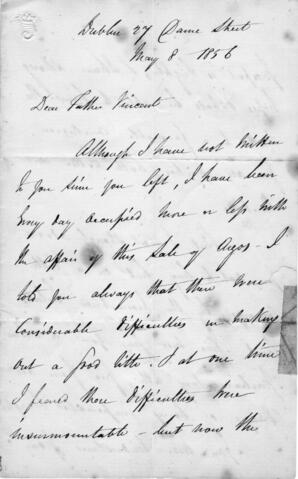 Dublin 27 Dame Street
May 8 1856
Dear Father Vincent
Although I have not written
to you since you left, I have been
every day occupied more or less with
the affair of this Sale of Argos - I
told you always that there were
Considerable difficulties in making
out a good title. & at one time
I feared these difficulties were
insurmountable - but now the